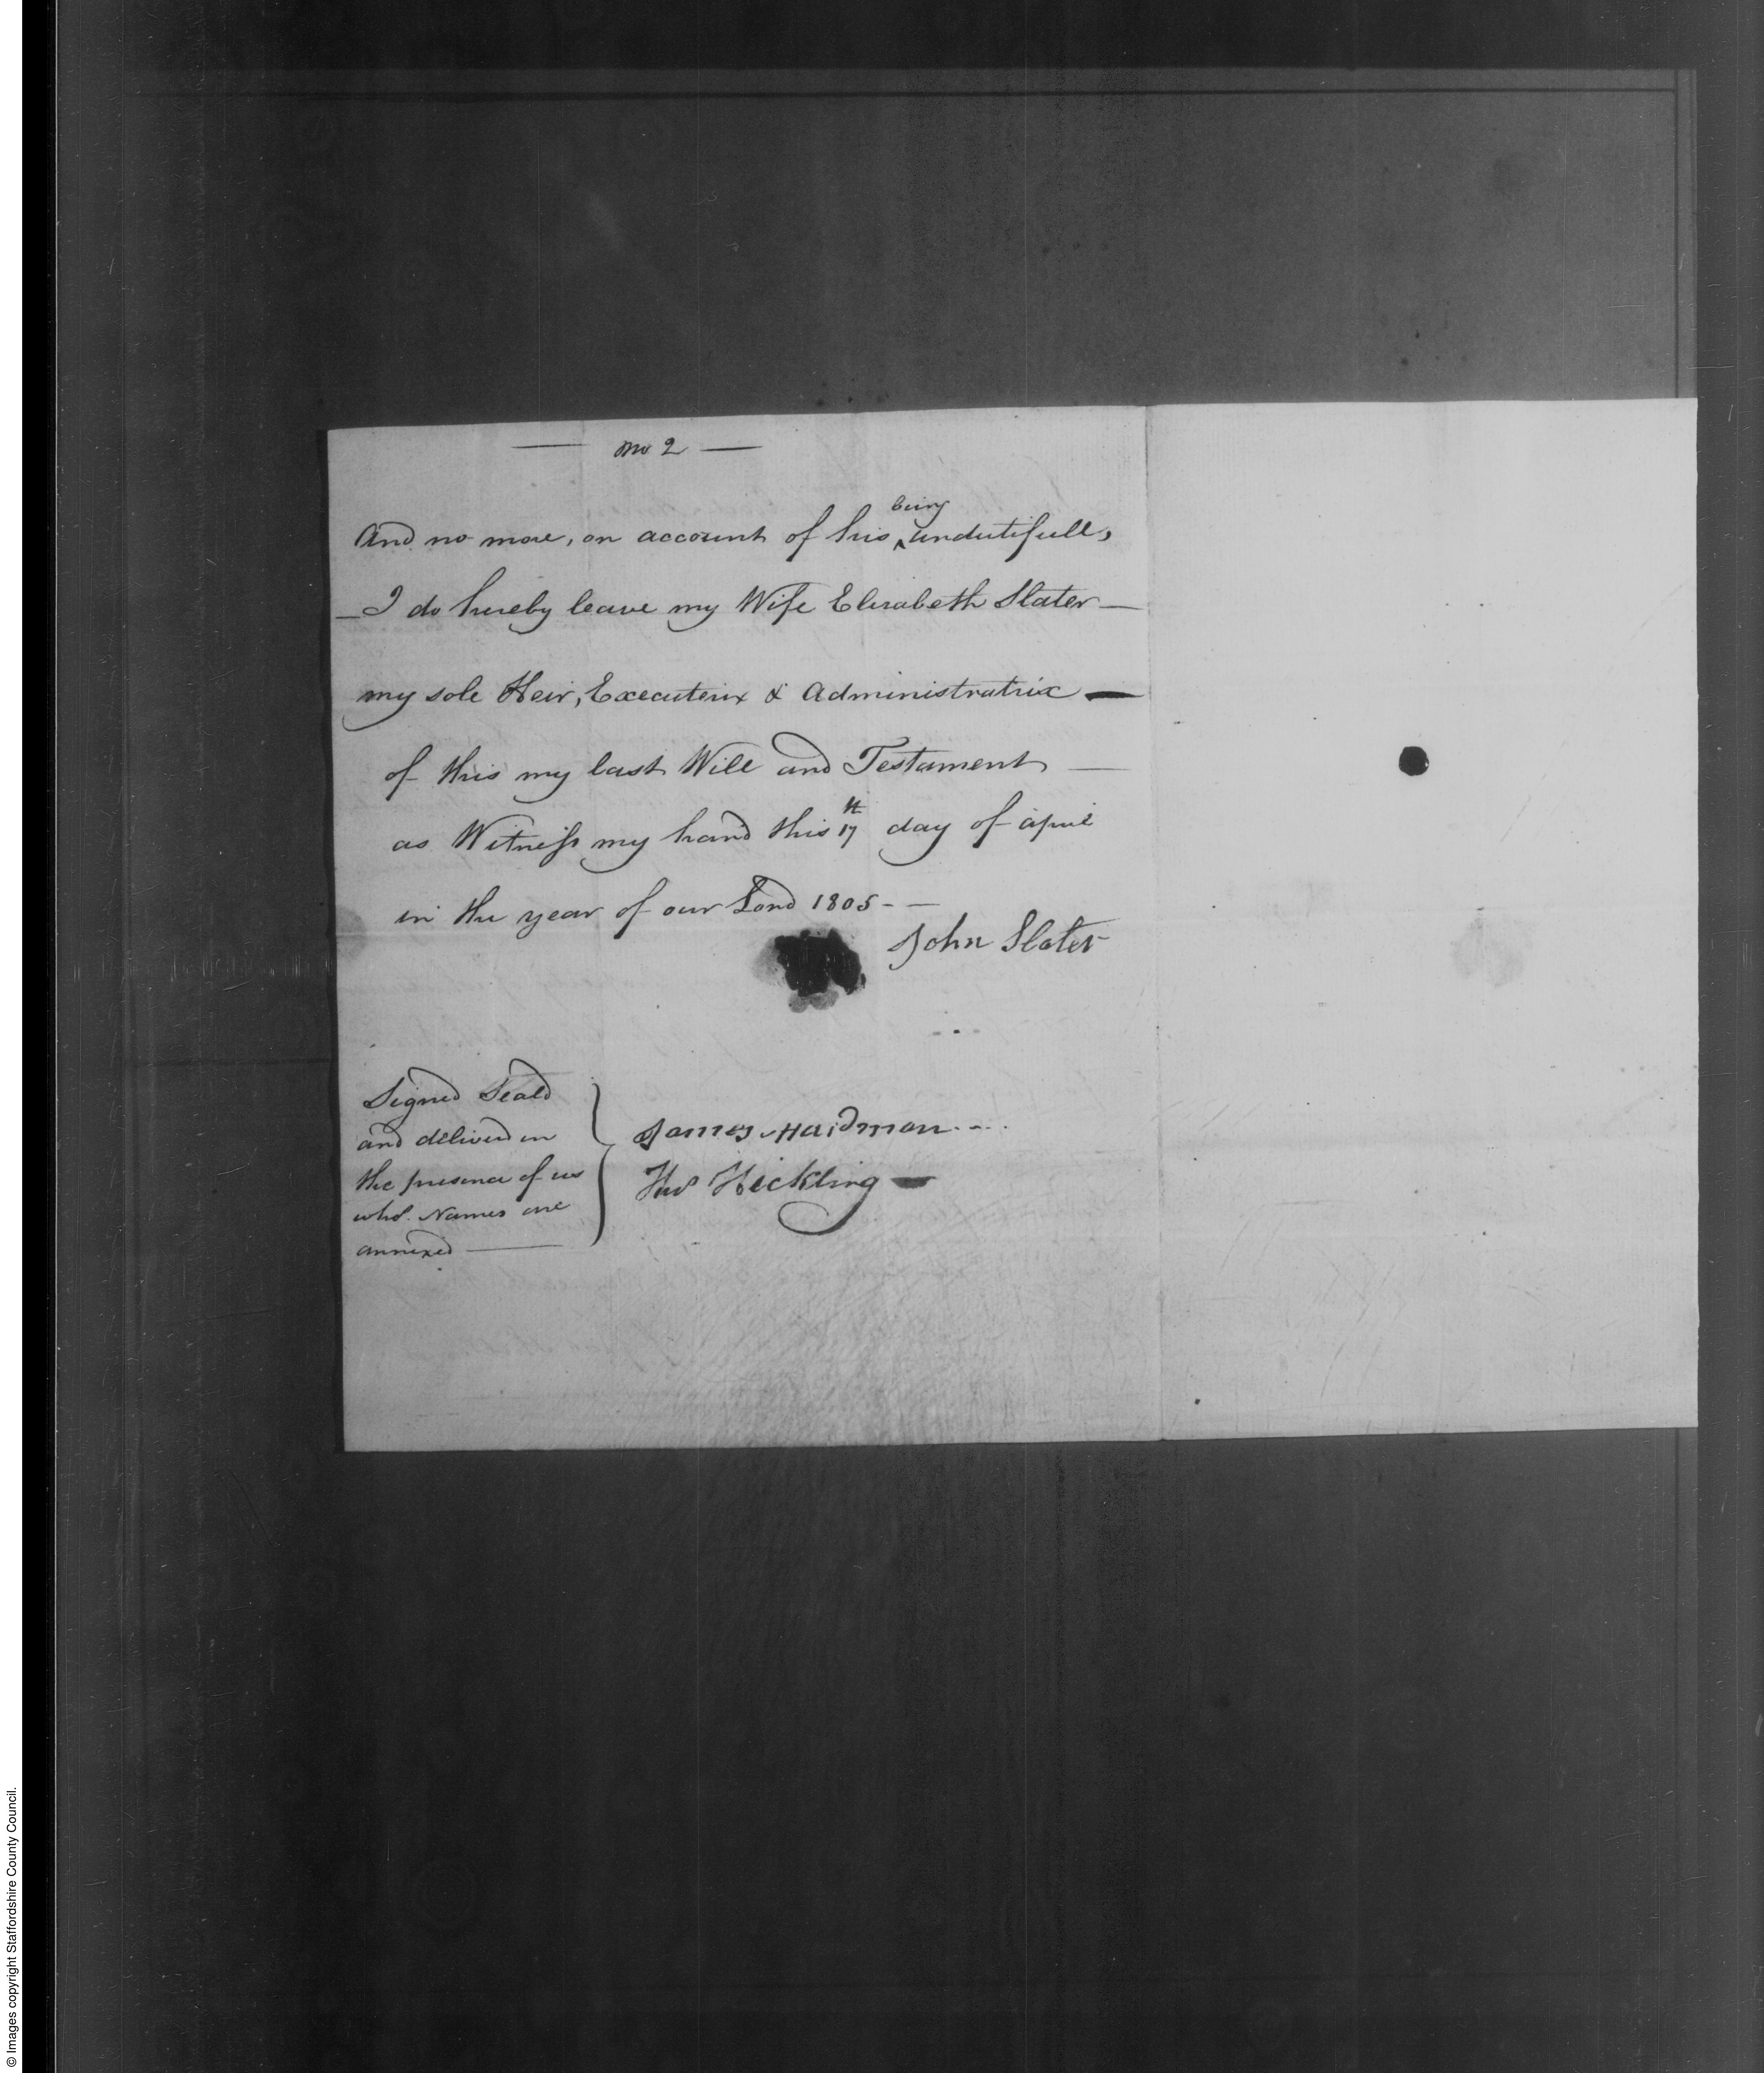 — No 2 —
And no more, on account of his ^being undutifull,
— I do hereby leave my Wife Elizabeth Slater —
my sole Heir, Executerix & Administratrix —
of this my last Will and Testament —
as Witness my hand this 17th day of april
in the year of our Lord 1805 - —
John Slater
Signed Seald
and deliverd in
the presence of us
who's Names are
annexed —
James Hardman
Thos Heckling —
© Images copyright Staffordshire County Council.